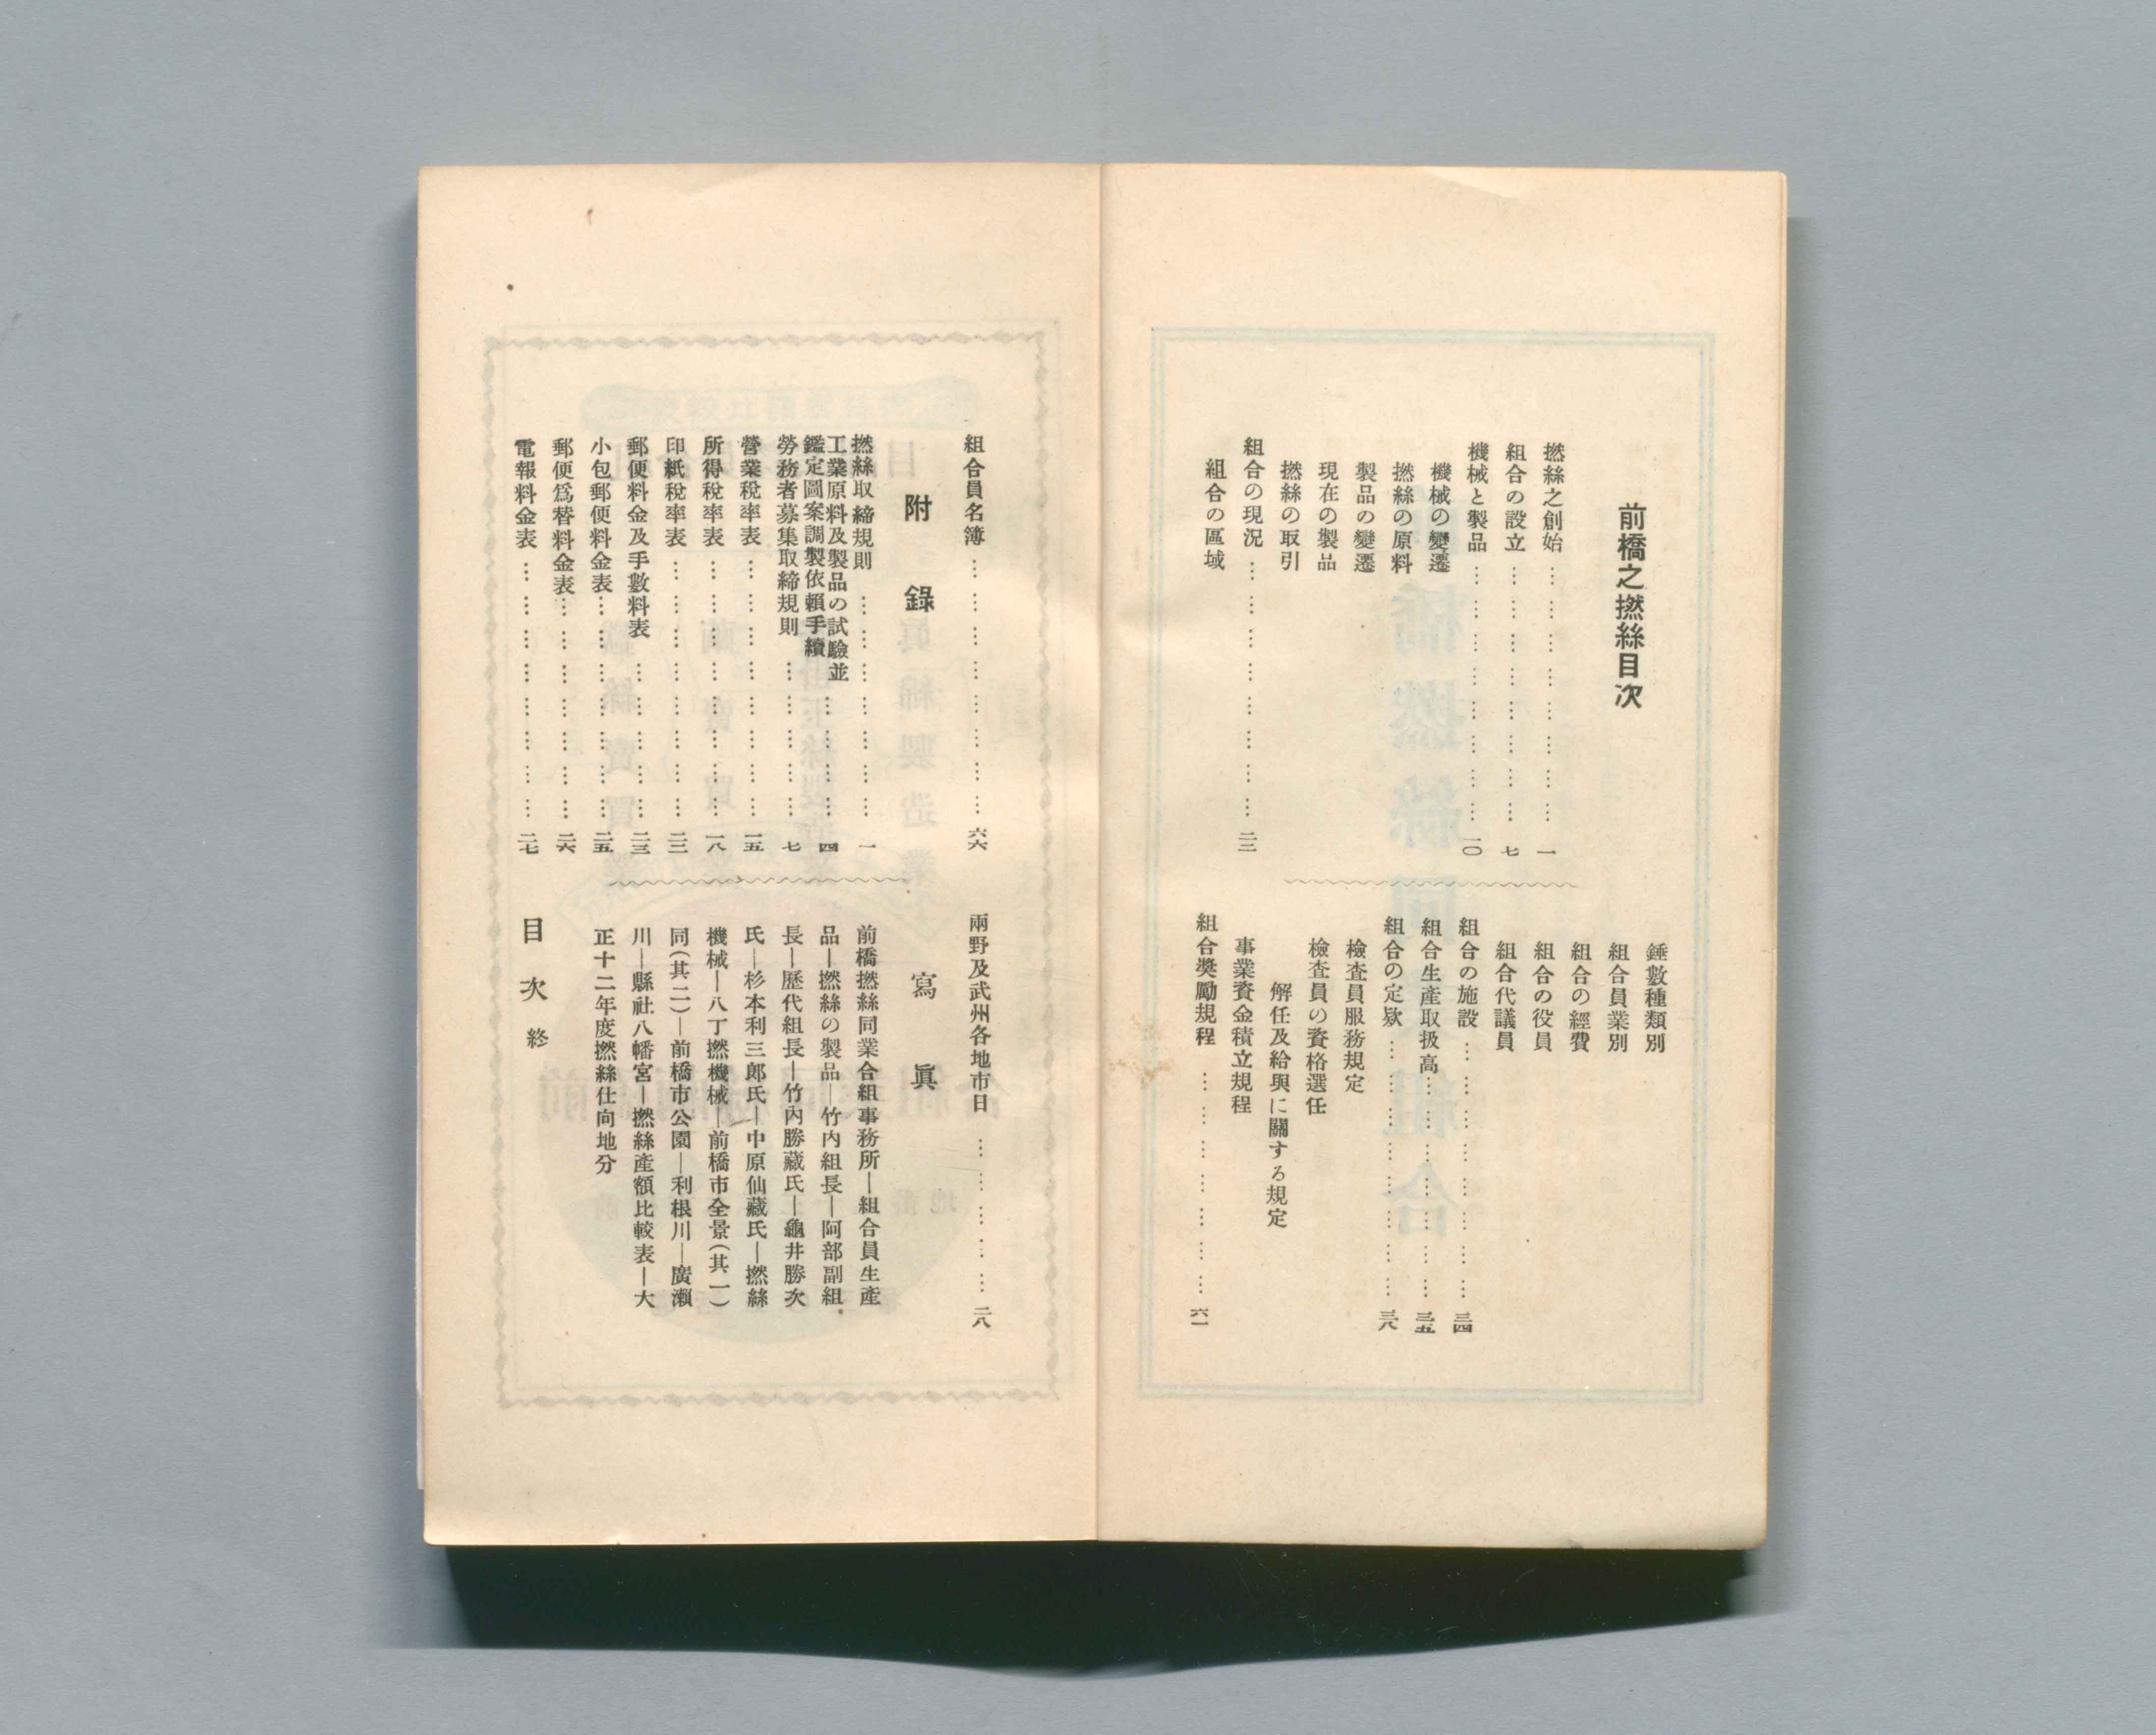 前橋之撚絲目次
撚絲之創始………………………一
組合の設立………………………七
機械と製品………………………一〇
機械の變遷
撚絲の原料
製品の變遷
現在の製品
撚絲の取引
組合の現況………………………二二
組合の區域
錘數種類別
組合員業別
組合の經費
組合の役員
組合代議員
組合の施設………………………三四
組合生產取扱高…………………三五
組合の定欵………………………三八
檢査員服務規定
檢査員の資格選任
解任及給與に關する規定
事業資金積立規程
組合奬勵規程……………………六一
組合員名簿………………………六六
附錄
撚絲取締規則……………………一
工業原料及製品の試驗並
鑑定圖案調製依賴手續…………四
勞務者募集取締規則……………七
營業稅率表………………………一五
所得稅率表………………………一八
印紙稅率表………………………二二
郵便料金及手數料表……………二三
小包郵便料金表…………………二五
郵便爲替料金表…………………二六
電報料金表………………………二七
兩野及武州各地市日……………二八
寫眞
前橋撚絲同業合組事務所―組合員生產
品―撚絲の製品―竹內組長―阿部副組
長―歷代組長―竹內勝藏氏―龜井勝次
氏―杉本利三郎氏―中原仙藏氏―撚絲
機械―八丁撚機械―前橋市全景(其一)
同(其二)―前橋市公園―利根川―廣瀨
川―縣社八幡宮―撚絲產額比較表―大
正十二年度撚絲仕向地分
目次終